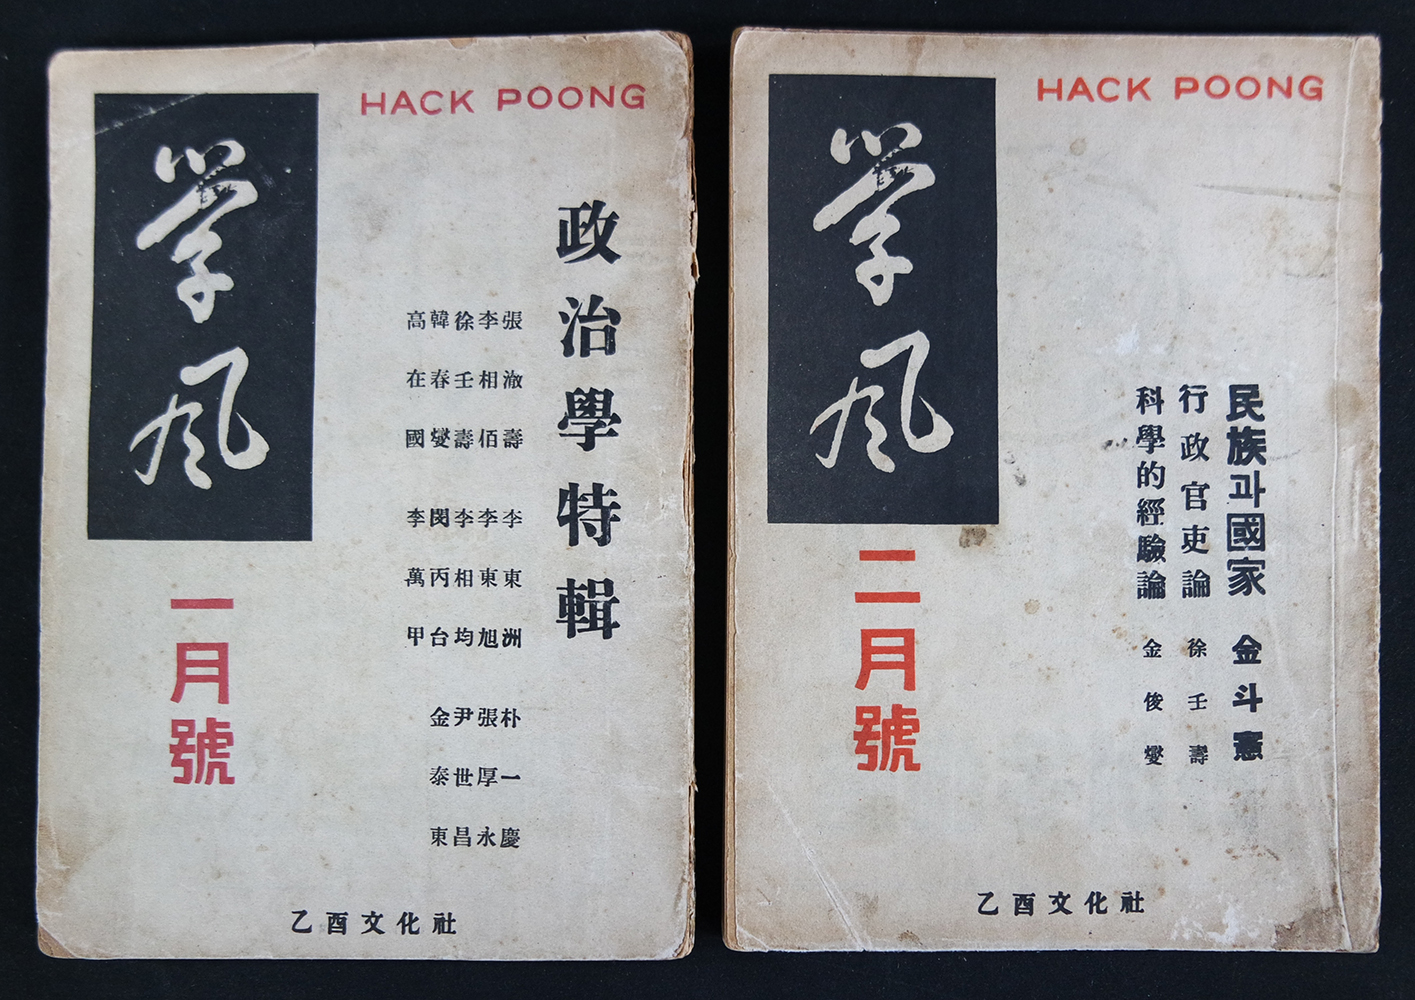 HACK POONG
學風
政治學特輯
張澈壽 李東洲 朴一慶
李相佰 李東旭 張厚永
徐壬壽 李相均 尹世昌
韓春燮 閔丙台 金泰東
高在國 李萬甲
一月號
乙酉文化社
HACK POONG
學風
民族과國家 金斗憲
行政官吏論 徐壬壽
科學的經驗論 金俊燮
二月號
乙酉文化社